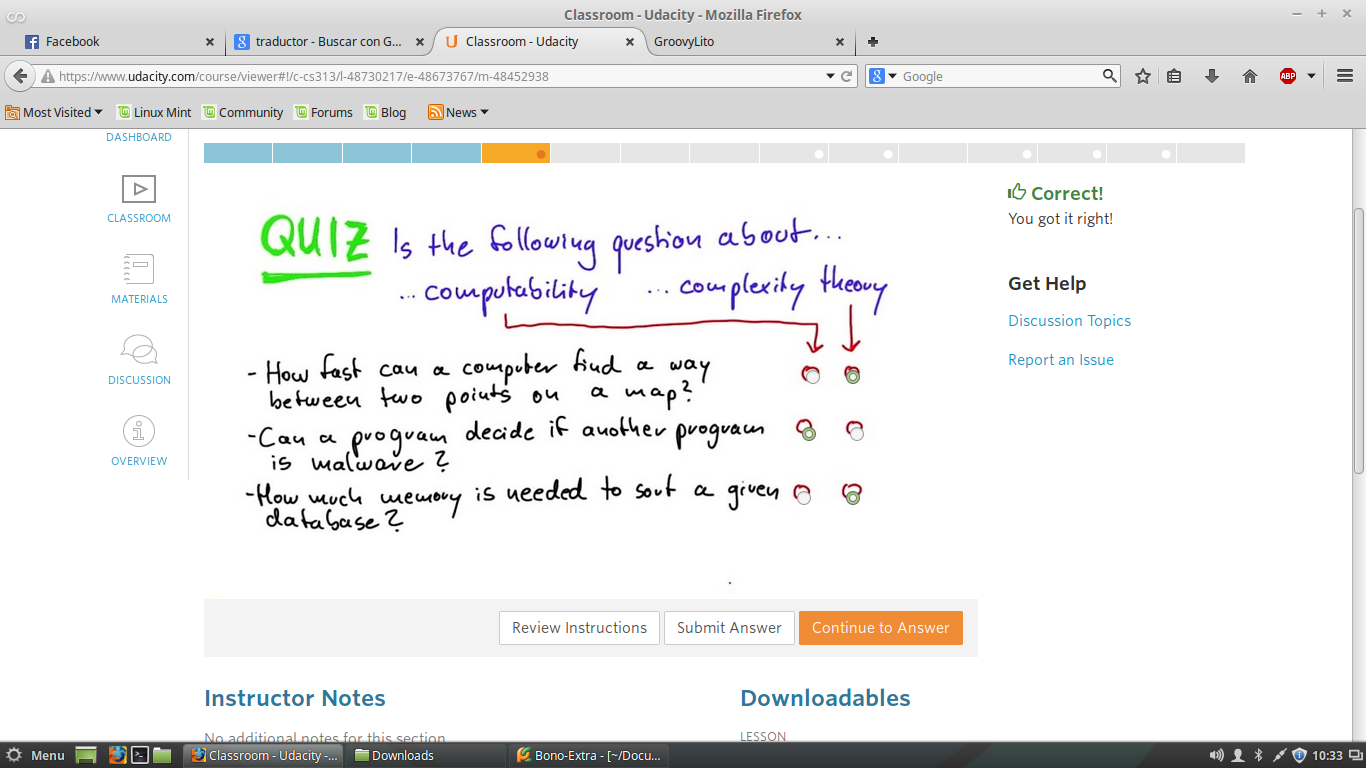 Classroom - Udacity - Mozilla Firefox
Facebook
traductor - Buscar con G...
Classroom - Udacity
GroovyLito
https://www.udacity.com/course/viewer#!/c-cs313/l-48730217/e-48673767/m-48452938
Google
ABP
Most Visited
Linux Mint
Community
Forums
Blog
News
DASHBOARD
CLASSROOM
MATERIALS
DISCUSSION
OVERVIEW
QUIZ Is the following question about...
... computability ... complexity theory
- How fast can a computer find a way
between two points on a map?
- Can a program decide if another program
is malware?
- How much memory is needed to sort a given
database?
Correct!
You got it right!
Get Help
Discussion Topics
Report an Issue
Review Instructions
Submit Answer
Continue to Answer
Instructor Notes
No additional notes for this section
Downloadables
LESSON
Menu
Classroom - Udacity -...
Downloads
Bono-Extra - [~/Docu...
10:33